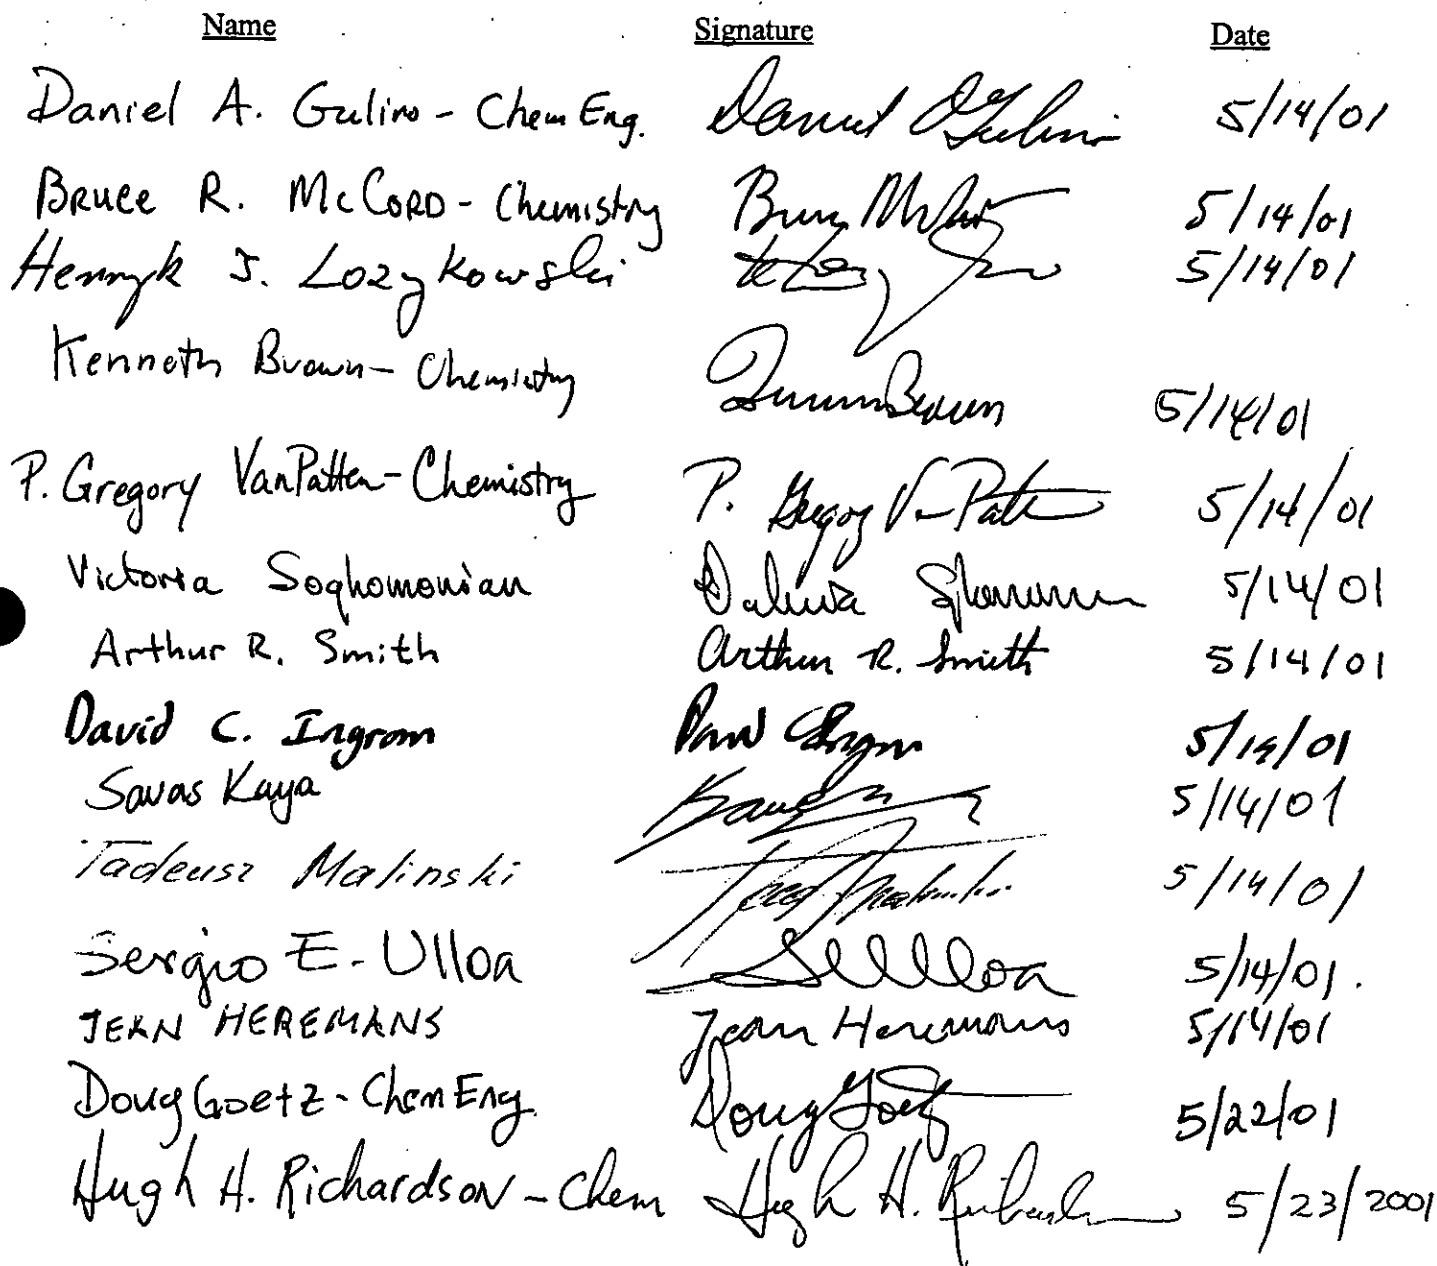 Name Signature Date
Daniel A. Gulino - Chem Eng. Daniel A Gulino 5/14/01
Bruce R. McCord - Chemistry Bruce McCord 5/14/01
Henryk J. Lozykowski 5/14/01
Kenneth Brown - Chemistry Brown 5/14/01
P. Gregory VanPatten - Chemistry P. Gregory Van Patten 5/14/01
Victoria Soghomonian 5/14/01
Arthur R. Smith Arthur R. Smith 5/14/01
David C. Ingram David C Ingram 5/14/01
Savas Kaya 5/14/01
Tadeusz Malinski Malinski 5/14/01
Sergio E. Ulloa SEUlloa 5/14/01.
JEAN HEREMANS Jean Heremans 5/14/01
Doug Goetz - Chem Eng. Doug Goetz 5/22/01
Hugh H. Richardson - Chem Hugh H. Richardson 5/23/2001